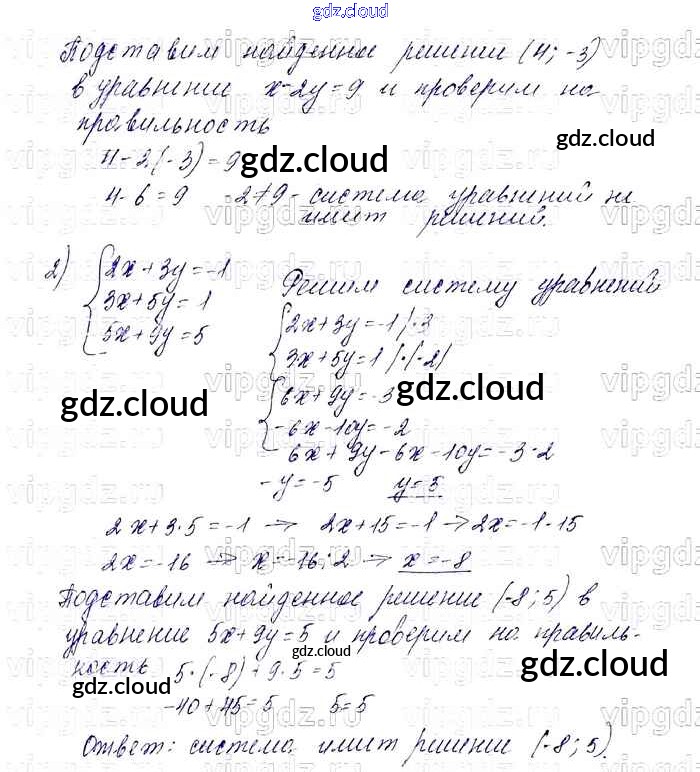 gdz.cloud
Подставим найденное решение (4; -3)
в уравнение x-2y=9 и проверим на
правильность
gdz.cloud
4-2·(-3)=9
gdz.cloud
4-6=9 -2≠9 - система уравнений не
имеет решений.
2) {2x+3y=-1
3x+5y=1
5x+9y=5
Решим систему уравнений
{2x+3y=-1 |·3
3x+5y=1 |·(-2)
{6x+9y=-3
-6x-10y=-2
gdz.cloud
gdz.cloud
6x+9y-6x-10y=-3-2
-y=-5 y=5
2x+3·5=-1 → 2x+15=-1 → 2x=-1-15
2x=-16 → x=-16:2 → x=-8
Подставим найденное решение (-8; 5) в
уравнение 5x+9y=5 и проверим на правиль-
ность
5·(-8)+9·5=5
gdz.cloud
gdz.cloud
gdz.cloud
-40+45=5 5=5
Ответ: система имеет решение (-8; 5).